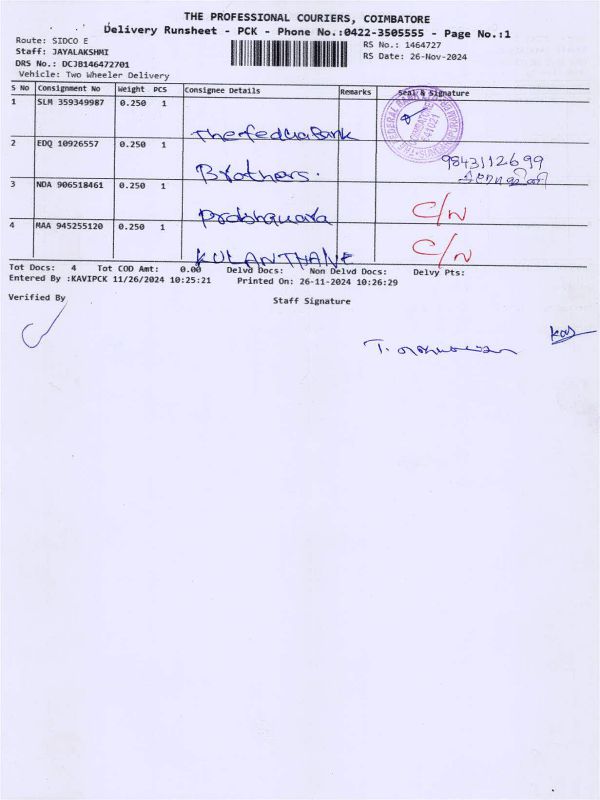 THE PROFESSIONAL COURIERS, COIMBATORE
Delivery Runsheet - PCK - Phone No.:0422-3505555 - Page No.:1
Route: SIDCO E
RS No.: 1464727
Staff: JAYALAKSHMI
RS Date: 26-Nov-2024
DRS No.: DCJB146472701
Vehicle: Two Wheeler Delivery
S No Consignment No Weight PCS Consignee Details Remarks Seal & Signature
1 SLM 359349987 0.250 1
2 EDQ 10926557 0.250 1
Brothers.
9843112699
3 NDA 906518461 0.250 1
C/N
4 MAA 945255120 0.250 1
KULANTHAIVE
C/N
Tot Docs: 4 Tot COD Amt: 0.00 Delvd Docs: Non Delvd Docs: Delvy Pts:
Entered By :KAVIPCK 11/26/2024 10:25:21 Printed On: 26-11-2024 10:26:29
Verified By
Staff Signature